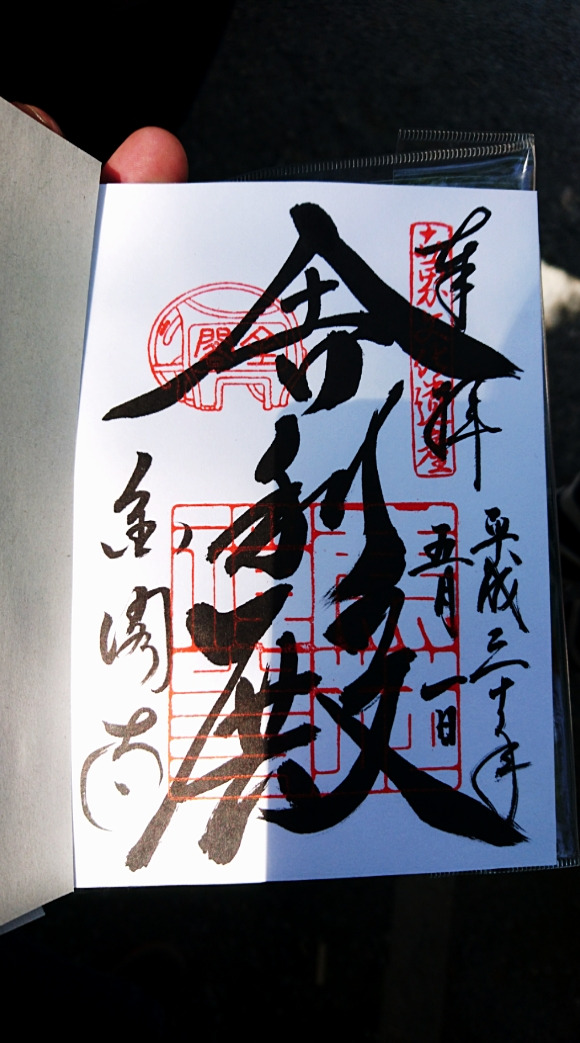 奉拝
平成三十年
五月一日
舎利殿
金閣
金閣寺